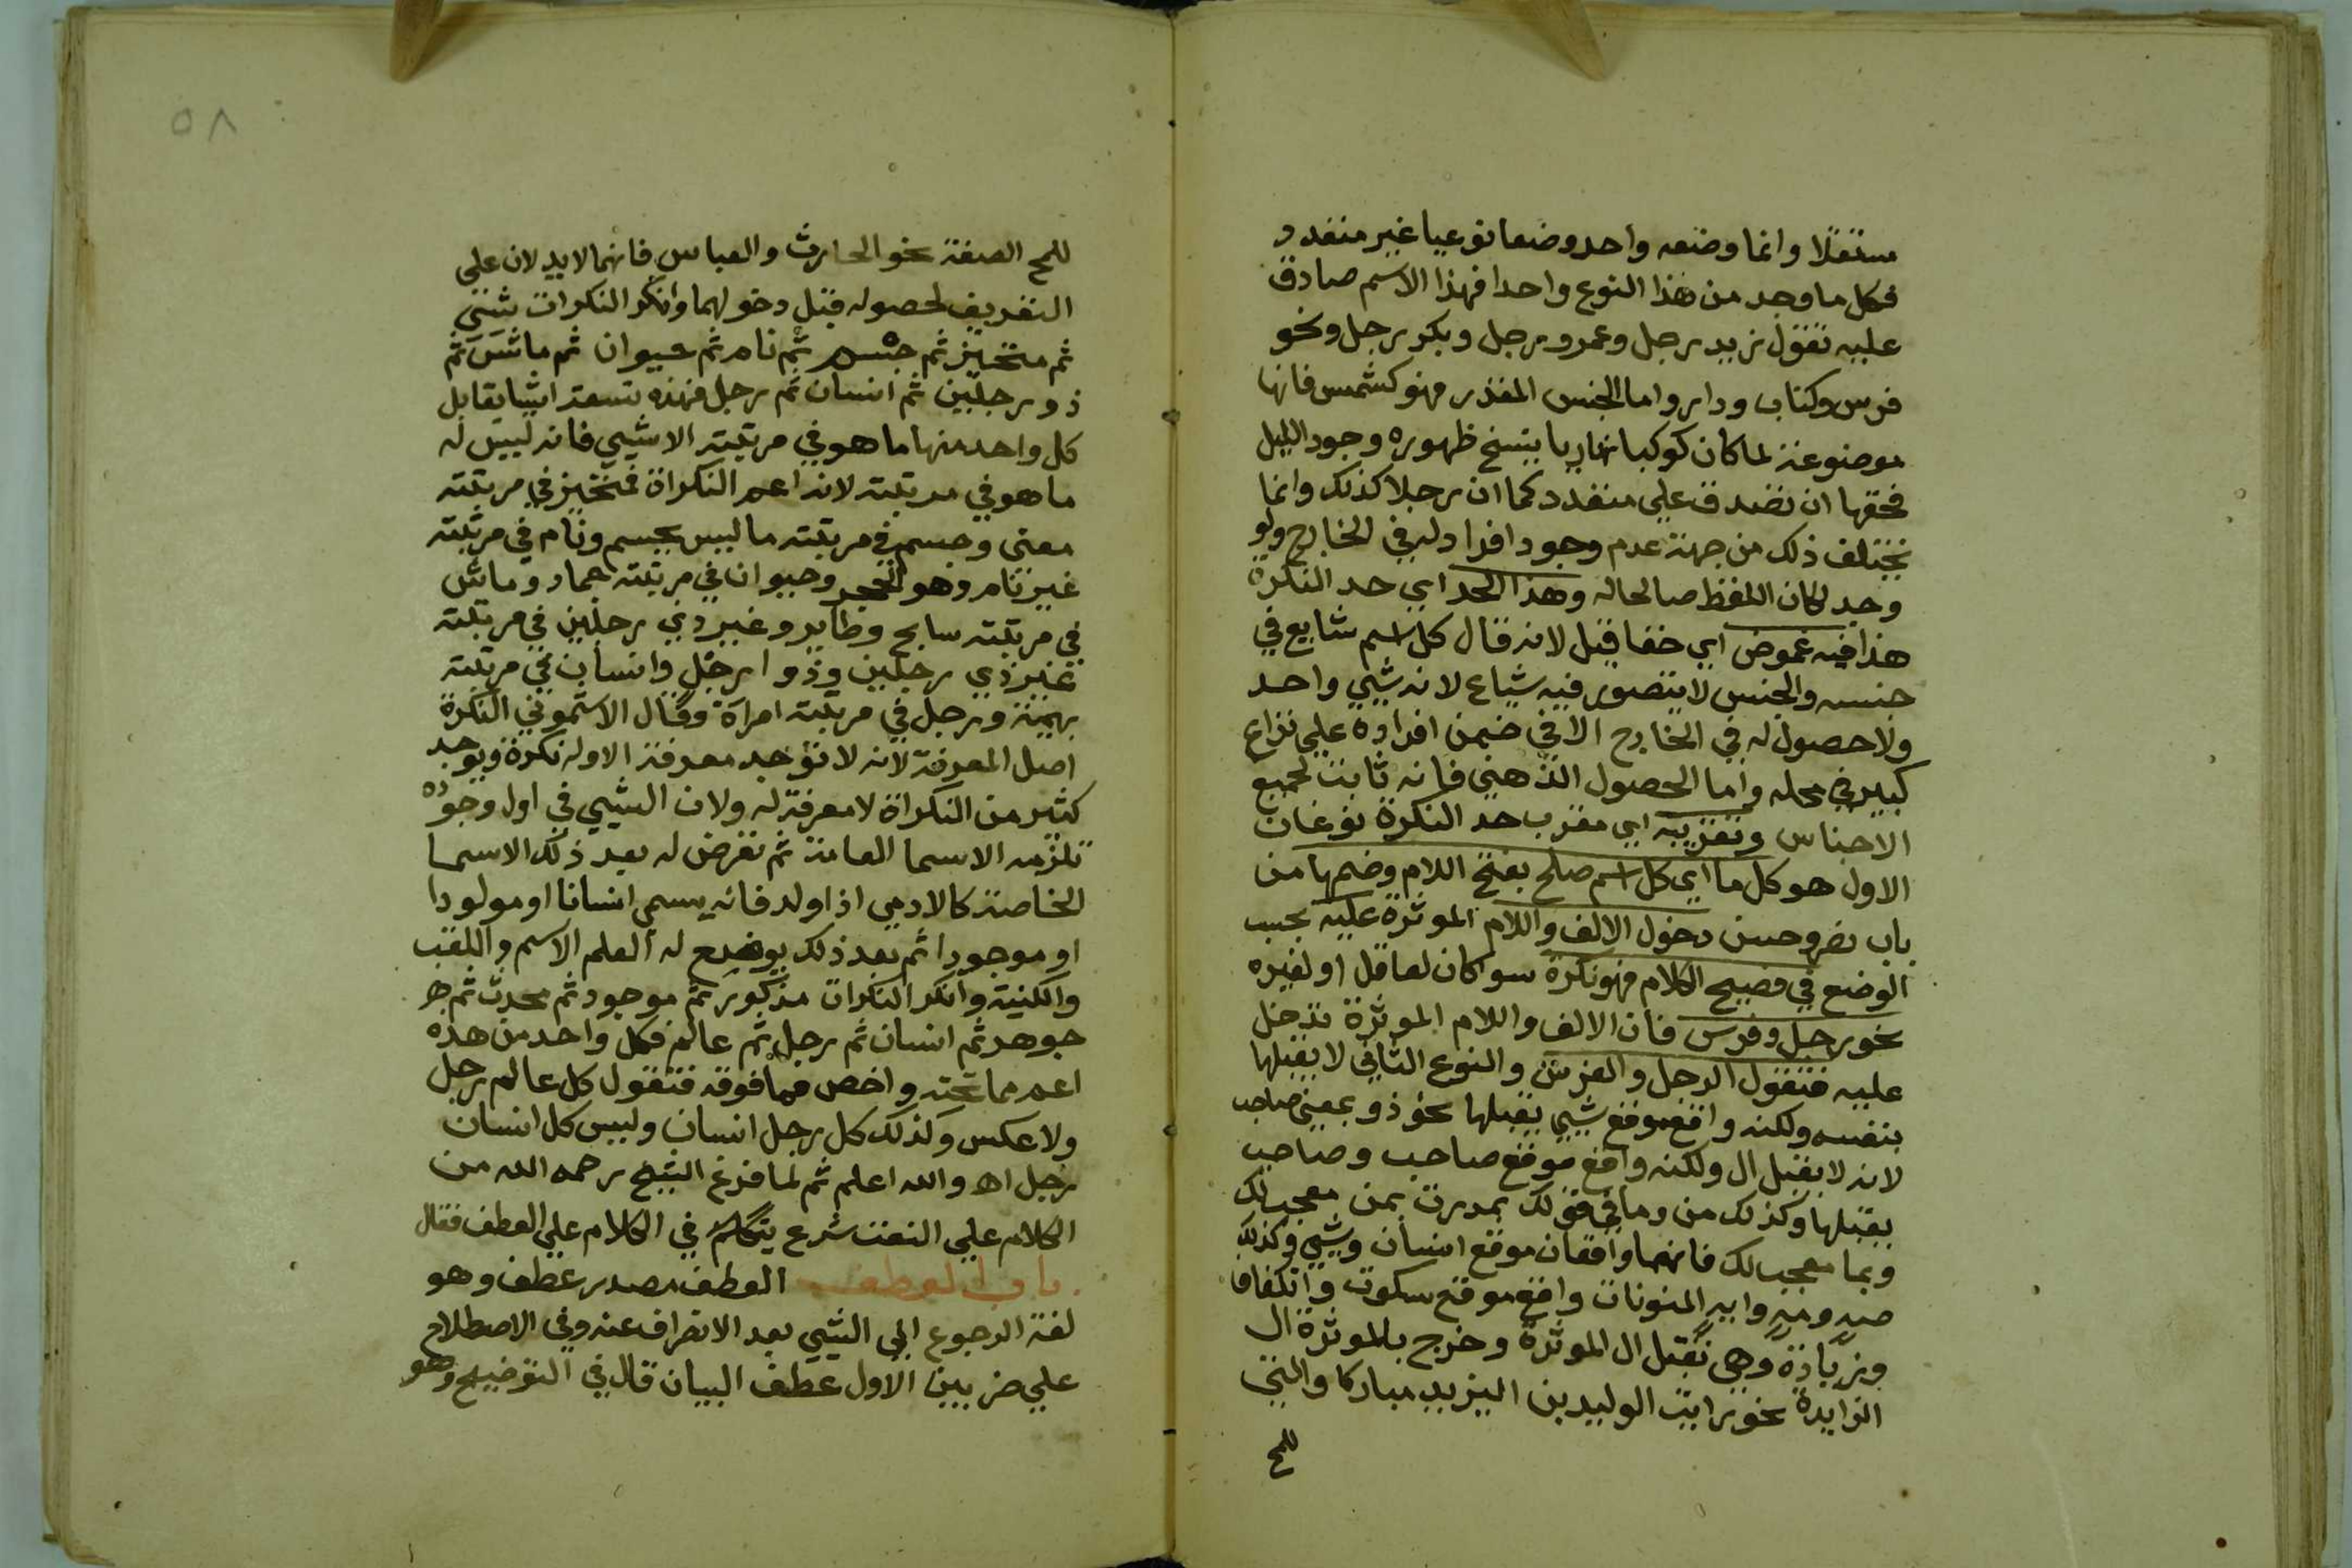 مستقلا وانما وضعه واحد وضعا نوعيا غير متعدد
فكل ما وجد من هذا النوع واحدا فهذا الاسم صادق
عليه تقول زيد رجل وعمرو رجل وبكر رجل ونحو
فرس وكتاب ودار واما الجنس المقدر فهو كشمس فانها
موضوعة لما كان كوكبا نهاريا ينسخ ظهوره وجود الليل
فحقها ان تصدق علي متعدد كما ان رجلا كذلك وانما
تختلف ذلك من جهة عدم وجود افراد له في الخارج ولو
وجد لكان اللفظ صالحا له وهذا الحد اي حد النكرة
هذا فيه غموض اي خفا قيل لانه قال كل اسم شايع في
جنسه والجنس لا يتصور فيه شياع لانه شيي واحد
ولا حصول له في الخارج الا في ضمن افراده علي نزاع
كبير في محله واما الحصول الذهني فانه ثابت لجميع
الاجناس وتقريبه اي مقرب حد النكرة نوعان
الاول هو كل ما اي كل اسم صلح بفتح اللام وضمها من
باب نصر وحسن دخول الالف واللام الموثرة عليه بحسب
الوضع في فصيح الكلام فهو نكرة سوا كان لعاقل او لغيره
نحو رجل وفرس فان الالف واللام الموثرة تدخل
عليه فتقول الرجل والفرس والنوع الثاني لا يقبلها
بنفسه ولكنه واقع موقع شيي يقبلها نحو ذو بمعني صاحب
لانه لا يقبل ال ولكنه واقع موقع صاحب وصاحب
يقبلها وكذلك من وما في قولك مررت بمن معجب لك
وبما معجب لك فانهما واقعان موقع انسان وشيي وكذلك
صه ومه وايه المنونات واقع موقع سكوت وانكفافا
وزيادة وهي تقبل ال الموثرة وخرج بالموثرة ال
الزايدة نحو رايت الوليد بن اليزيد مباركا والتي
للمح
٥٨
للمح الصفة نحو الحارث والعباس فانهما لا يدلان علي
التعريف لحصوله قبل دخولهما وانكر النكرات شيي
ثم متحيز ثم جسم ثم نام ثم حيوان ثم ماش ثم
ذو رجلين ثم انسان ثم رجل فهذه تسعة اشيا يقابل
كل واحد منها ما هو في مرتبته الا شيي فانه ليس له
ما هو في مرتبته لانه اعم النكراة فمتحيز في مرتبته
معني وجسم في مرتبته ما ليس بجسم ونام في مرتبته
غير نام وهو الحجر وحيوان في مرتبته جماد وماش
في مرتبته سابح وطاير وغير ذي رجلين في مرتبته
غير ذي رجلين وذو ارجل وانسان في مرتبته
بهيمة ورجل في مرتبته امراة وقال الاشموني النكرة
اصل المعرفة لانه لا توجد معرفة الا وله نكرة ويوجد
كثير من النكراة لا معرفة له ولان الشيي في اول وجوده
تلزمه الاسما العامة ثم تعرض له بعد ذلك الاسما
الخاصة كالادمي اذا ولد فانه يسمي انسانا او مولودا
او موجودا ثم بعد ذلك يوضع له العلم الاسم واللقب
والكنية وانكر النكرات مذكور ثم موجود ثم محدث ثم جو
جوهر ثم انسان ثم رجل ثم عالم فكل واحد من هذه
اعم مما تحته واخص مما فوقه فتقول كل عالم رجل
ولا عكس وكذلك كل رجل انسان وليس كل انسان
رجل اه والله اعلم ثم لما فرغ الشيخ رحمه الله من
الكلام علي النعت شرع يتكلم في الكلام علي العطف فقال
باب العطف العطف مصدر عطف وهو
لغة الرجوع الي الشيي بعد الانصراف عنه وفي الاصطلاح
علي ضربين الاول عطف البيان قال في التوضيح وهو